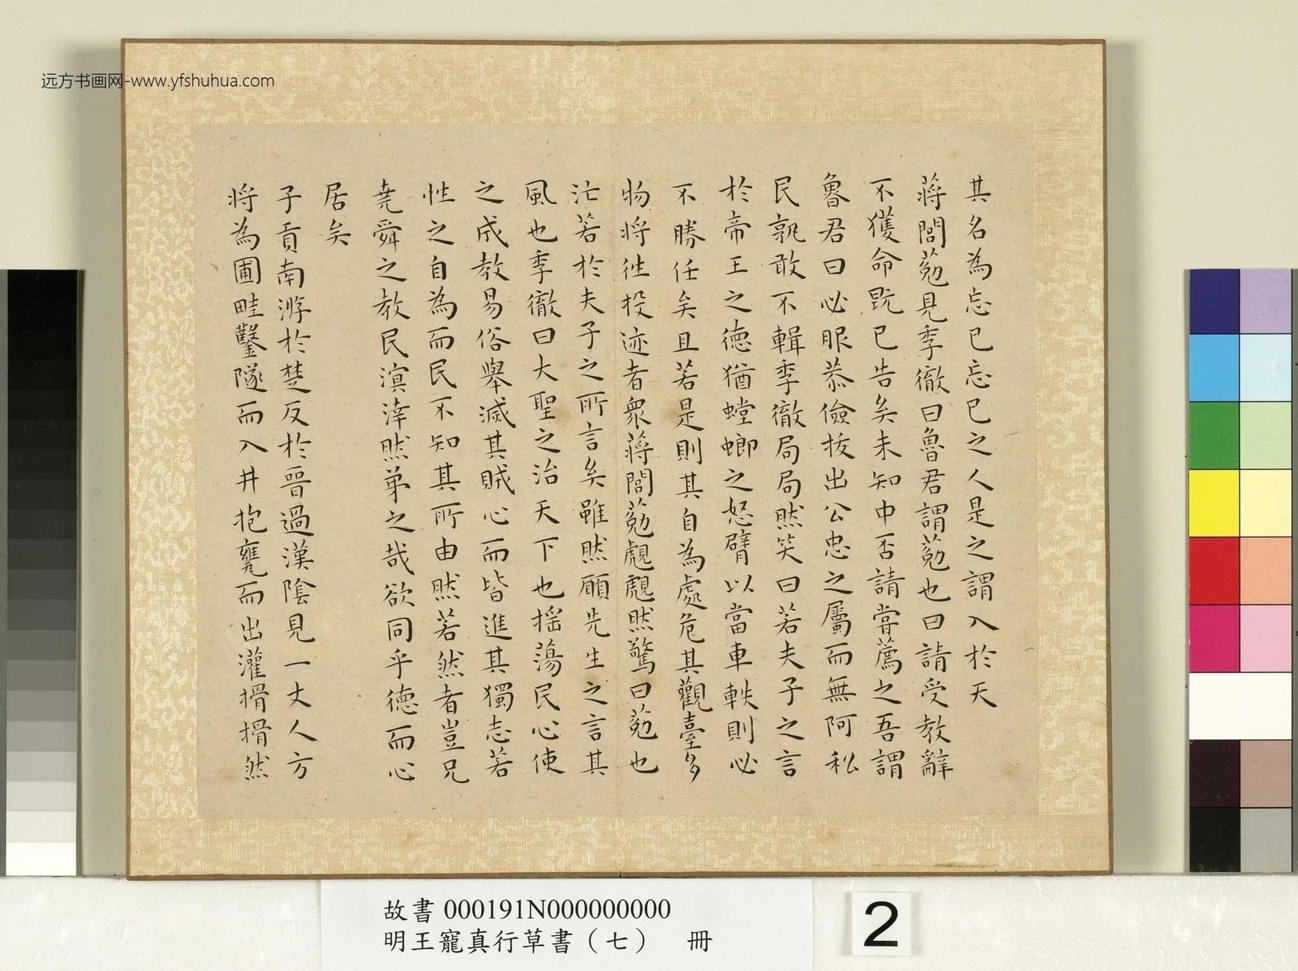 远方书画网-www.yfshuhua.com
其名為忘己忘己之人是之謂入於天
蔣閭葂見季徹曰魯君謂葂也曰請受教辭
不獲命既已告矣未知中否請嘗薦之吾謂
魯君曰必服恭儉拔出公忠之屬而無阿私
民孰敢不輯季徹局局然笑曰若夫子之言
於帝王之德猶螳蜋之怒臂以當車軼則必
不勝任矣且若是則其自為處危其觀臺多
物將往投迹者眾蔣閭葂覤覤然驚曰葂也
汒若於夫子之所言矣雖然願先生之言其
風也季徹曰大聖之治天下也搖蕩民心使
之成教易俗舉滅其賊心而皆進其獨志若
性之自為而民不知其所由然若然者豈兄
堯舜之教民溟涬然弟之哉欲同乎德而心
居矣
子貢南游於楚反於晉過漢陰見一丈人方
將為圃畦鑿隧而入井抱甕而出灌搰搰然
故書000191N000000000
明王寵真行草書（七） 冊
2